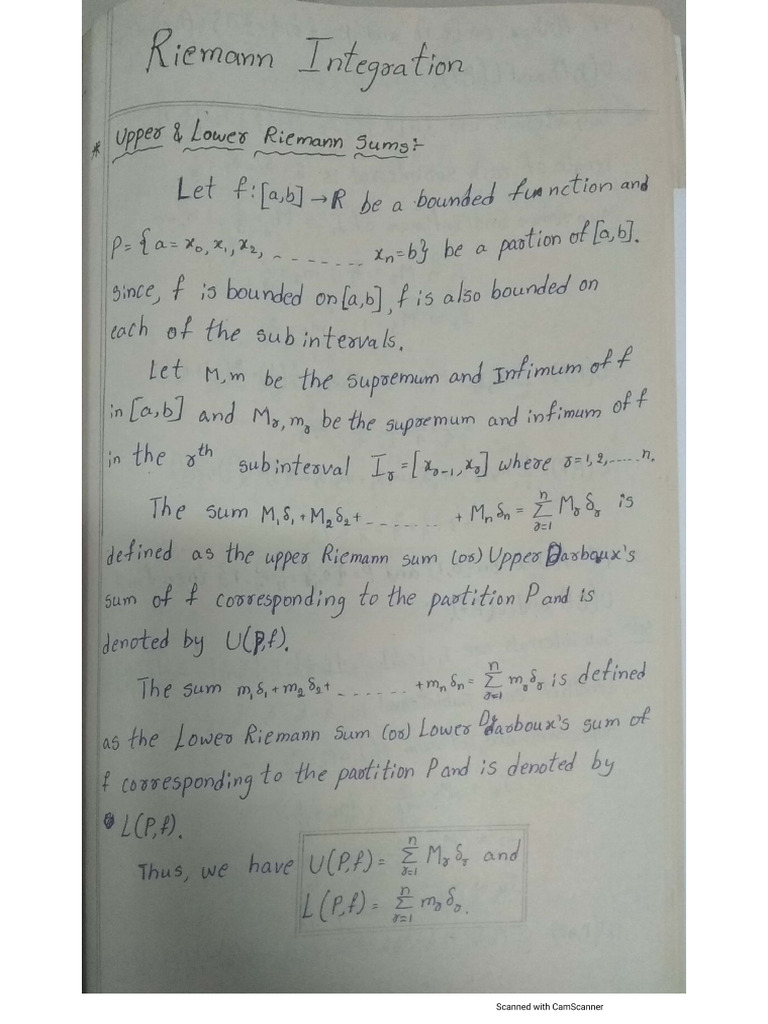 Riemann Integration
* Upper & Lower Riemann Sums:-
Let f:[a,b] → R be a bounded function and
P = {a = x₀, x₁, x₂, - - - - - - - xₙ = b} be a partion of [a,b].
since, f is bounded on [a,b], f is also bounded on
each of the sub intervals.
Let M, m be the supremum and Infimum of f
in [a,b] and Mᵣ, mᵣ be the supremum and infimum of f
in the rᵗʰ subinterval Iᵣ = [xᵣ₋₁, xᵣ] where r = 1, 2, ..... n.
The sum M₁δ₁ + M₂δ₂ + - - - - - - - + Mₙδₙ = ∑ⁿᵣ₌₁ Mᵣδᵣ is
defined as the upper Riemann sum (or) Upper Darboux's
sum of f corresponding to the partition P and is
denoted by U(P,f).
The sum m₁δ₁ + m₂δ₂ + - - - - - - - + mₙδₙ = ∑ⁿᵣ₌₁ mᵣδᵣ is defined
as the Lower Riemann Sum (or) Lower Darboux's sum of
f corresponding to the partition P and is denoted by
L(P,f).
Thus, we have U(P,f) = ∑ⁿᵣ₌₁ Mᵣδᵣ and
L(P,f) = ∑ⁿᵣ₌₁ mᵣδᵣ.
Scanned with CamScanner